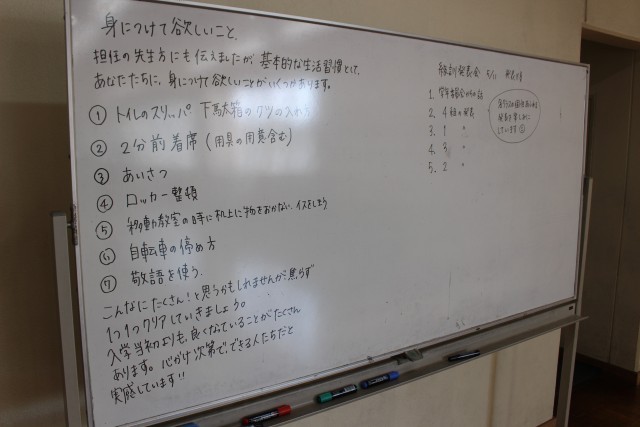 身につけて欲しいこと、
担任の先生方にも伝えましたが、基本的な生活習慣として、
あなたたちに、身につけて欲しいことがいくつかあります。
① トイレのスリッパ 下駄箱のクツの入れ方
② 2分前着席（用具の用意含む）
③ あいさつ
④ ロッカー整頓
⑤ 移動教室の時に机上に物をおかない、イスをしまう
⑥ 自転車の停め方
⑦ 敬語を使う.
こんなにたくさん！と思うかもしれませんが焦らず
1つ1つクリアしていきましょう。
入学当初よりも、良くなっていることがたくさん
あります。心がけ次第で、できる人たちだと
実感しています!!
級訓発表会 5/11
1. 学年
2. 4組の発表
3. 1 〃
4. 3 〃
5. 2 〃
楽しみに
しています